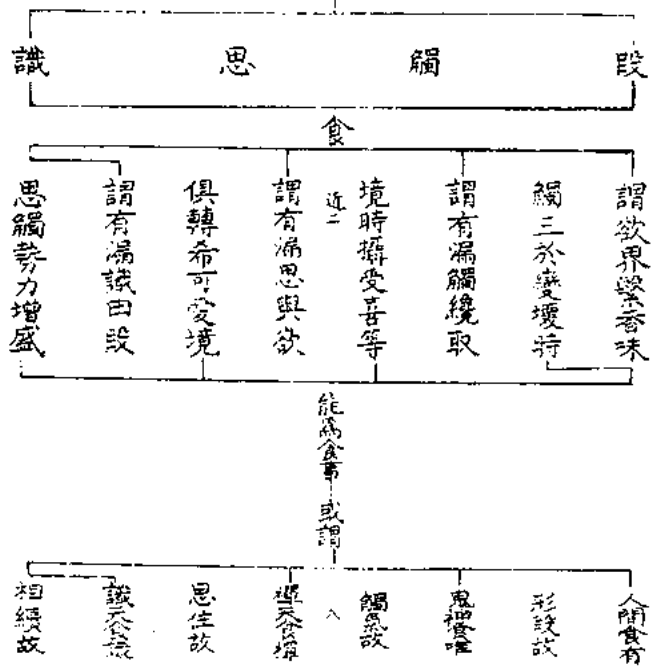 段 觸 思 識
食
謂欲界繫香味
觸三於變壞時
謂有漏觸纔取
境時攝受喜等
近二
謂有漏思與欲
俱轉希可愛境
謂有漏識由段
思觸勢力增盛
能為食事 或謂
人間食有
形段故
鬼神食唯
觸氣故
八
禪天食禪
思住故
識天食識
相續故